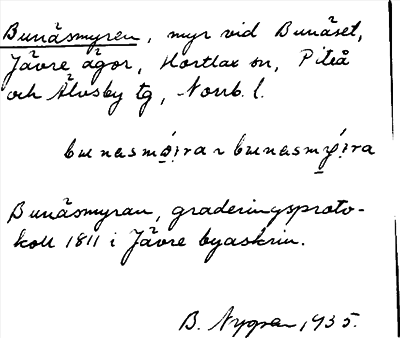 Bunäsmyren, myr vid Bunäset,
Jävre ägor, Hortlax sn, Piteå
och Älvsby tg, Norrb. l.
bunasmǿ̣i̯ra ~ bunasmỵ́i̯ra
Bunäsmyran, graderingsproto-
koll 1811 i Jävre byaskrin.
B. Nygren 1935.